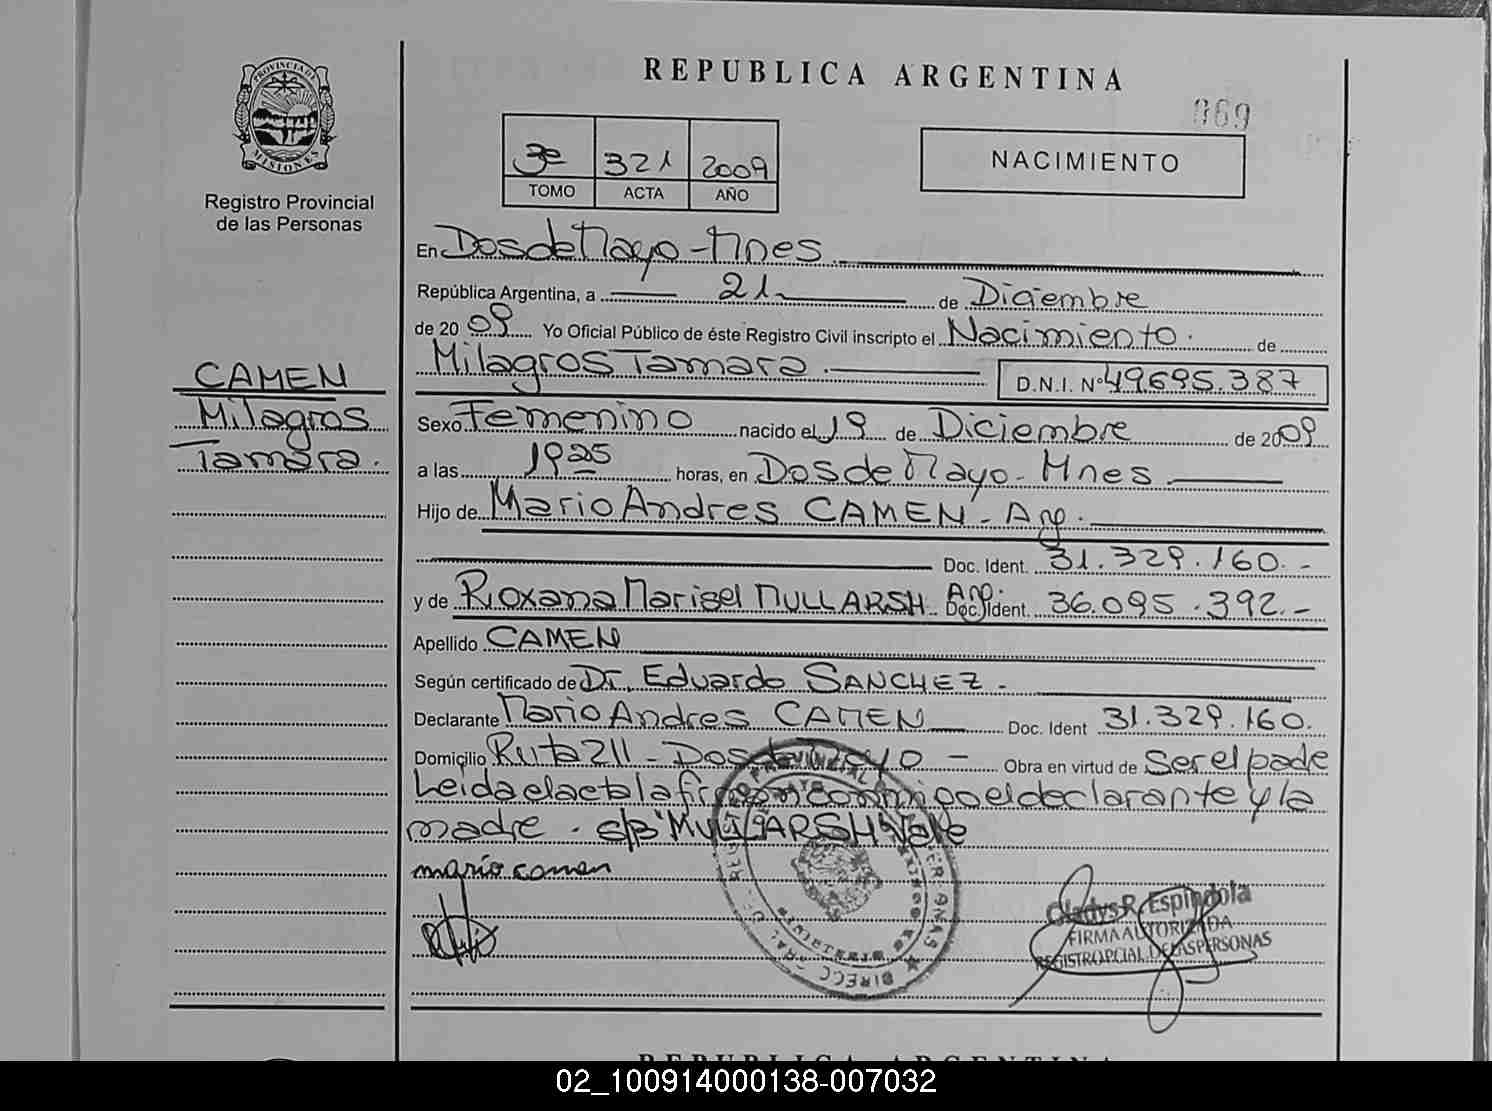 REPUBLICA ARGENTINA
069
PROVINCIA DE
MISIONES
Registro Provincial
de las Personas
3º 321 2009
TOMO ACTA AÑO
NACIMIENTO
En Dos de Mayo - Mnes
República Argentina, a 21 de Diciembre
de 2009 Yo Oficial Público de éste Registro Civil inscripto el Nacimiento. de
Milagros Tamara. D.N.I. Nº 49.695.387
CAMEN
Milagros
Tamara.
Sexo Femenino nacido el 19 de Diciembre de 2009
a las 19 25 horas, en Dos de Mayo - Mnes
Hijo de Mario Andres CAMEN - Arg.
Doc. Ident. 31.329.160.-
y de Roxana Marisel MULLARSH Arg. Doc. Ident. 36.095.392.-
Apellido CAMEN
Según certificado de Dr. Eduardo SANCHEZ.
Declarante Mario Andres CAMEN Doc. Ident 31.329.160.
Domicilio Ruta 211 - Dos de Mayo - Obra en virtud de Ser el padre
Leida el acta la firman conmigo el declarante y la
madre. s/b "MULLARSH" Vale
mario camen
Gladys R. Espindola
FIRMA AUTORIZADA
REGISTRO PCIAL DE LAS PERSONAS
REPUBLICA ARGENTINA
02_100914000138-007032